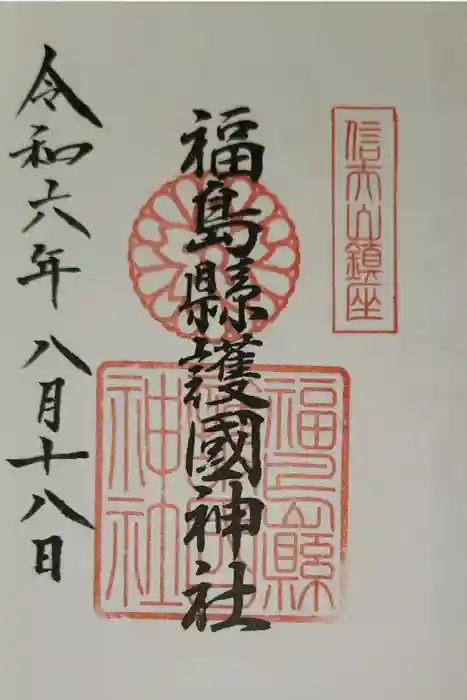 信夫山鎮座
福島縣護國神社
福島縣護國神社
令和六年八月十八日